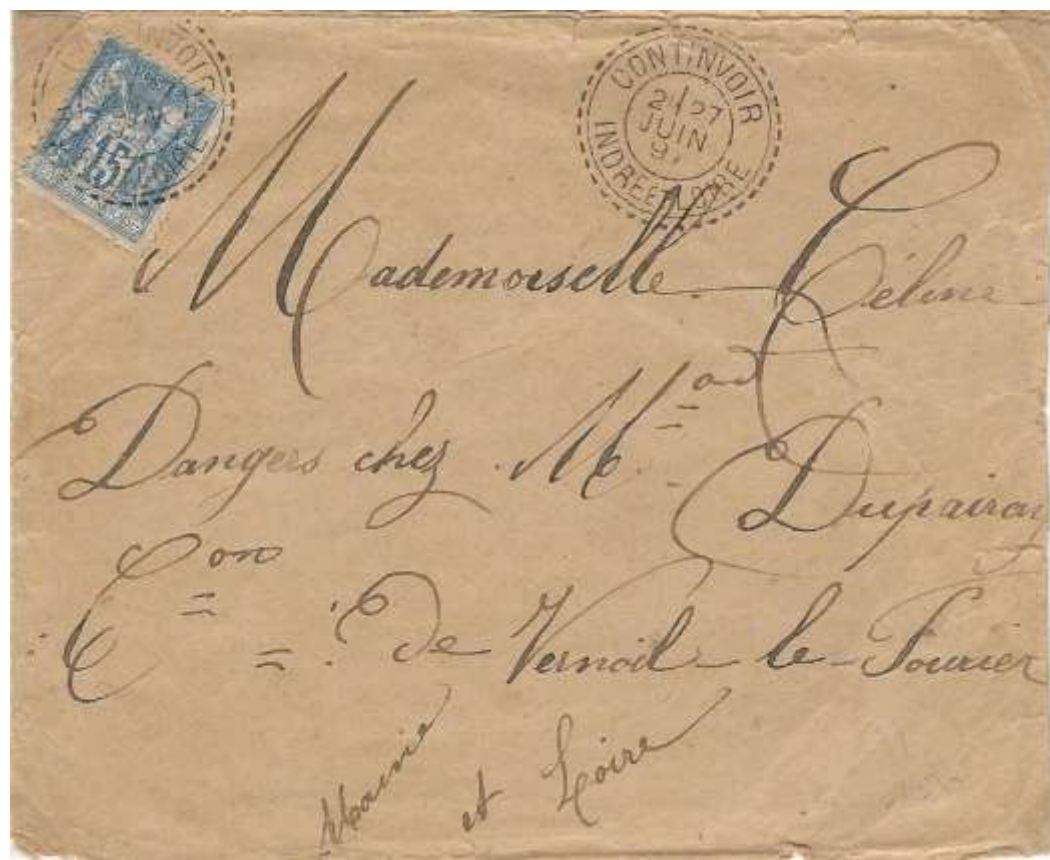 CONTINVOIR
2E 27
JUIN
9
INDRE ET LOIRE
15
Mademoiselle Céline
Dangers chez Mad
Dupairay
Con de Vernoil-le-Fourier
Maine
et Loire